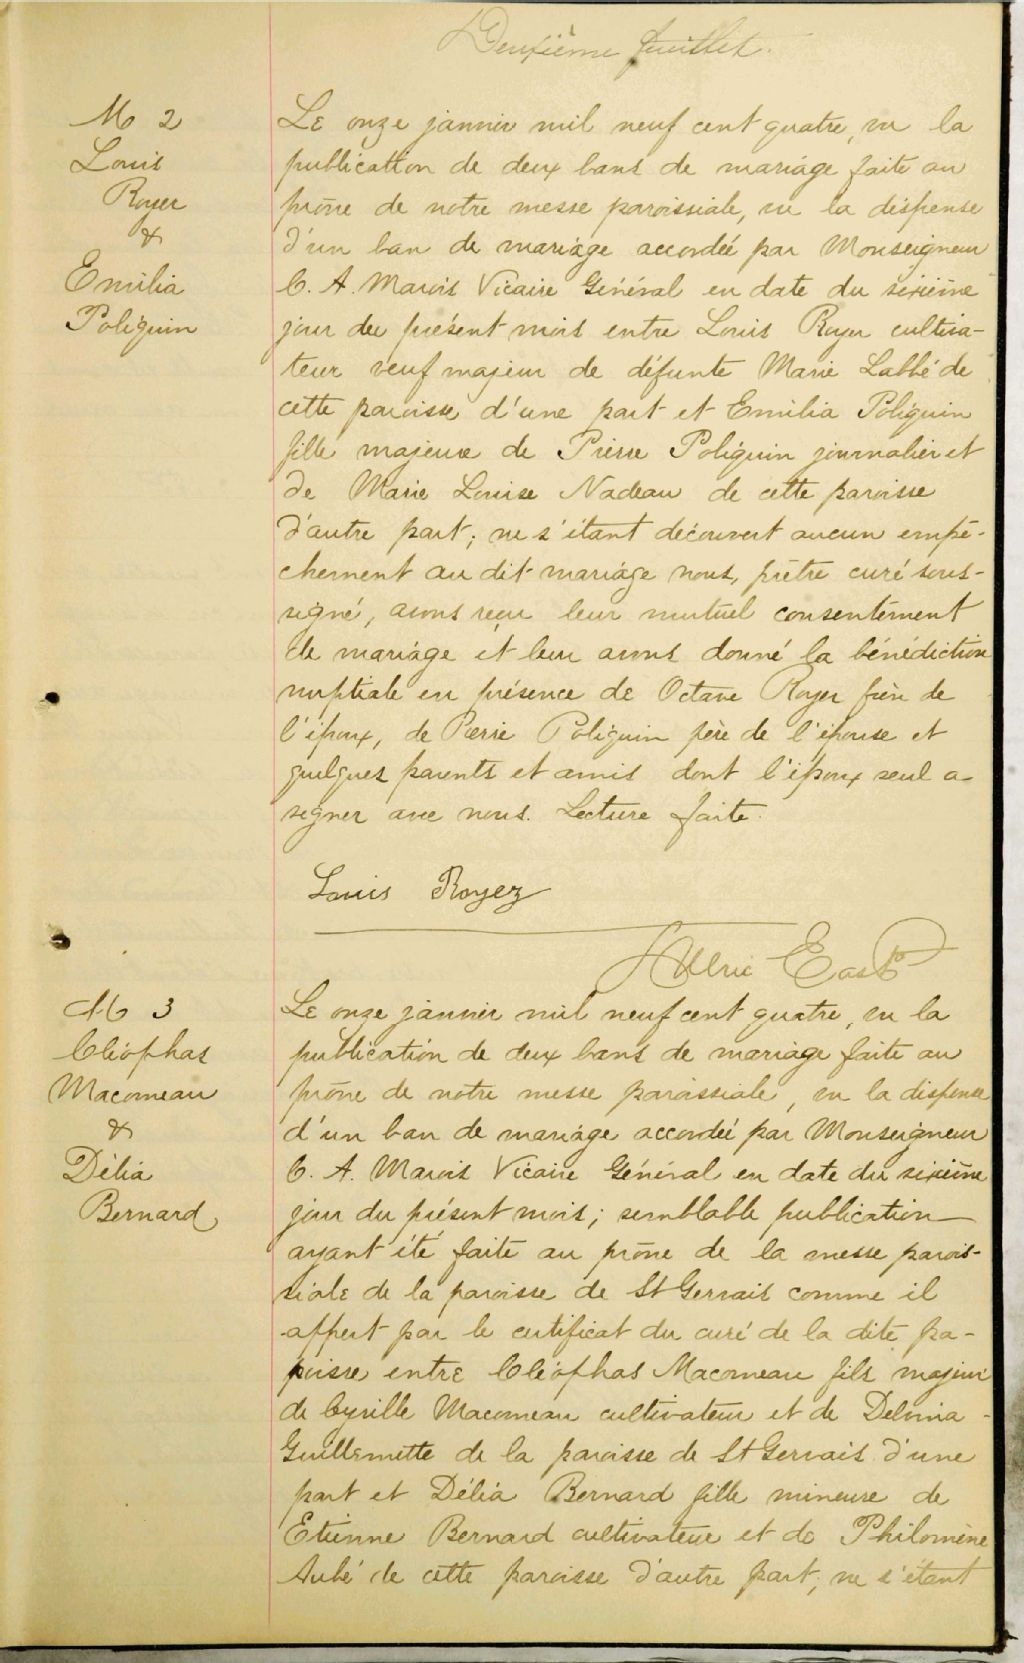 Deuxième feuillet.
M 2
Louis
Royer
&
Emilia
Poliquin
Le onze janvier mil neuf cent quatre, vu la
publication de deux bans de mariage faite au
prône de notre messe paroissiale, vu la dispense
d'un ban de mariage accordée par Monseigneur
C. A. Marois Vicaire Général en date du sixième
jour du présent mois entre Louis Royer cultiva-
teur veuf majeur de défunte Marie Labbé de
cette paroisse d'une part et Emilia Poliquin
fille majeure de Pierre Poliquin journalier et
de Marie Louise Nadeau de cette paroisse
d'autre part; ne s'étant découvert aucun empê-
chement au dit mariage nous, prêtre curé sous-
signé, avons reçu leur mutuel consentement
de mariage et leur avons donné la bénédiction
nuptiale en présence de Octave Royer frère de
l'époux, de Pierre Poliquin père de l'épouse et
quelques parents et amis dont l'époux seul a
signer avec nous. Lecture faite.
Louis Royez
Ulric East Ptr
M 3
Cléophas
Macomeau
&
Délia
Bernard
Le onze janvier mil neuf cent quatre, vu la
publication de deux bans de mariage faite au
prône de notre messe paroissiale, vu la dispense
d'un ban de mariage accordée par Monseigneur
C. A. Marois Vicaire Général en date du sixième
jour du présent mois; semblable publication
ayant été faite au prône de la messe parois-
siale de la paroisse de St Gervais comme il
appert par le certificat du curé de la dite pa-
roisse entre Cléophas Macomeau fils majeur
de Cyrille Macomeau cultivateur et de Delvina
Guillemette de la paroisse de St Gervais d'une
part et Délia Bernard fille mineure de
Etienne Bernard cultivateur et de Philomène
Aubé de cette paroisse d'autre part; ne s'étant